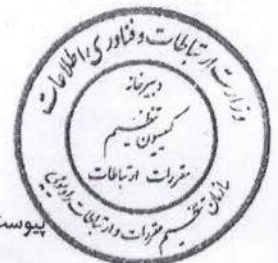 وزارت ارتباطات و فناوری اطلاعات
دبیرخانه
کمیسیون تنظیم
مقررات ارتباطات
سازمان تنظیم مقررات و ارتباطات رادیویی
پیوست